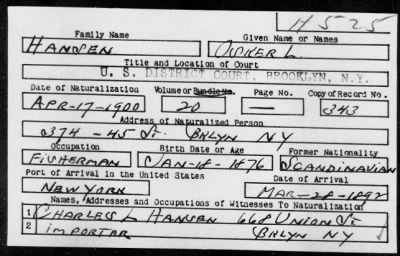 H525
Family Name Given Name or Names
HANSEN OSKER L.
Title and Location of Court
U. S. DISTRICT COURT, BROOKLYN, N.Y.
Date of Naturalization Volume or Bundle No. Page No. Copy of Record No.
APR-17-1900 20 — 343
Address of Naturalized Person
374 - 45 St. BKLYN NY
Occupation Birth Date or Age Former Nationality
FISHERMAN JAN-18-1876 SCANDINAVIAN
Port of Arrival in the United States Date of Arrival
NEW YORK MAR-28-1892
Names, Addresses and Occupations of Witnesses To Naturalization
1 CHARLES L HANSEN 668 UNION St
2 importer BKLYN NY